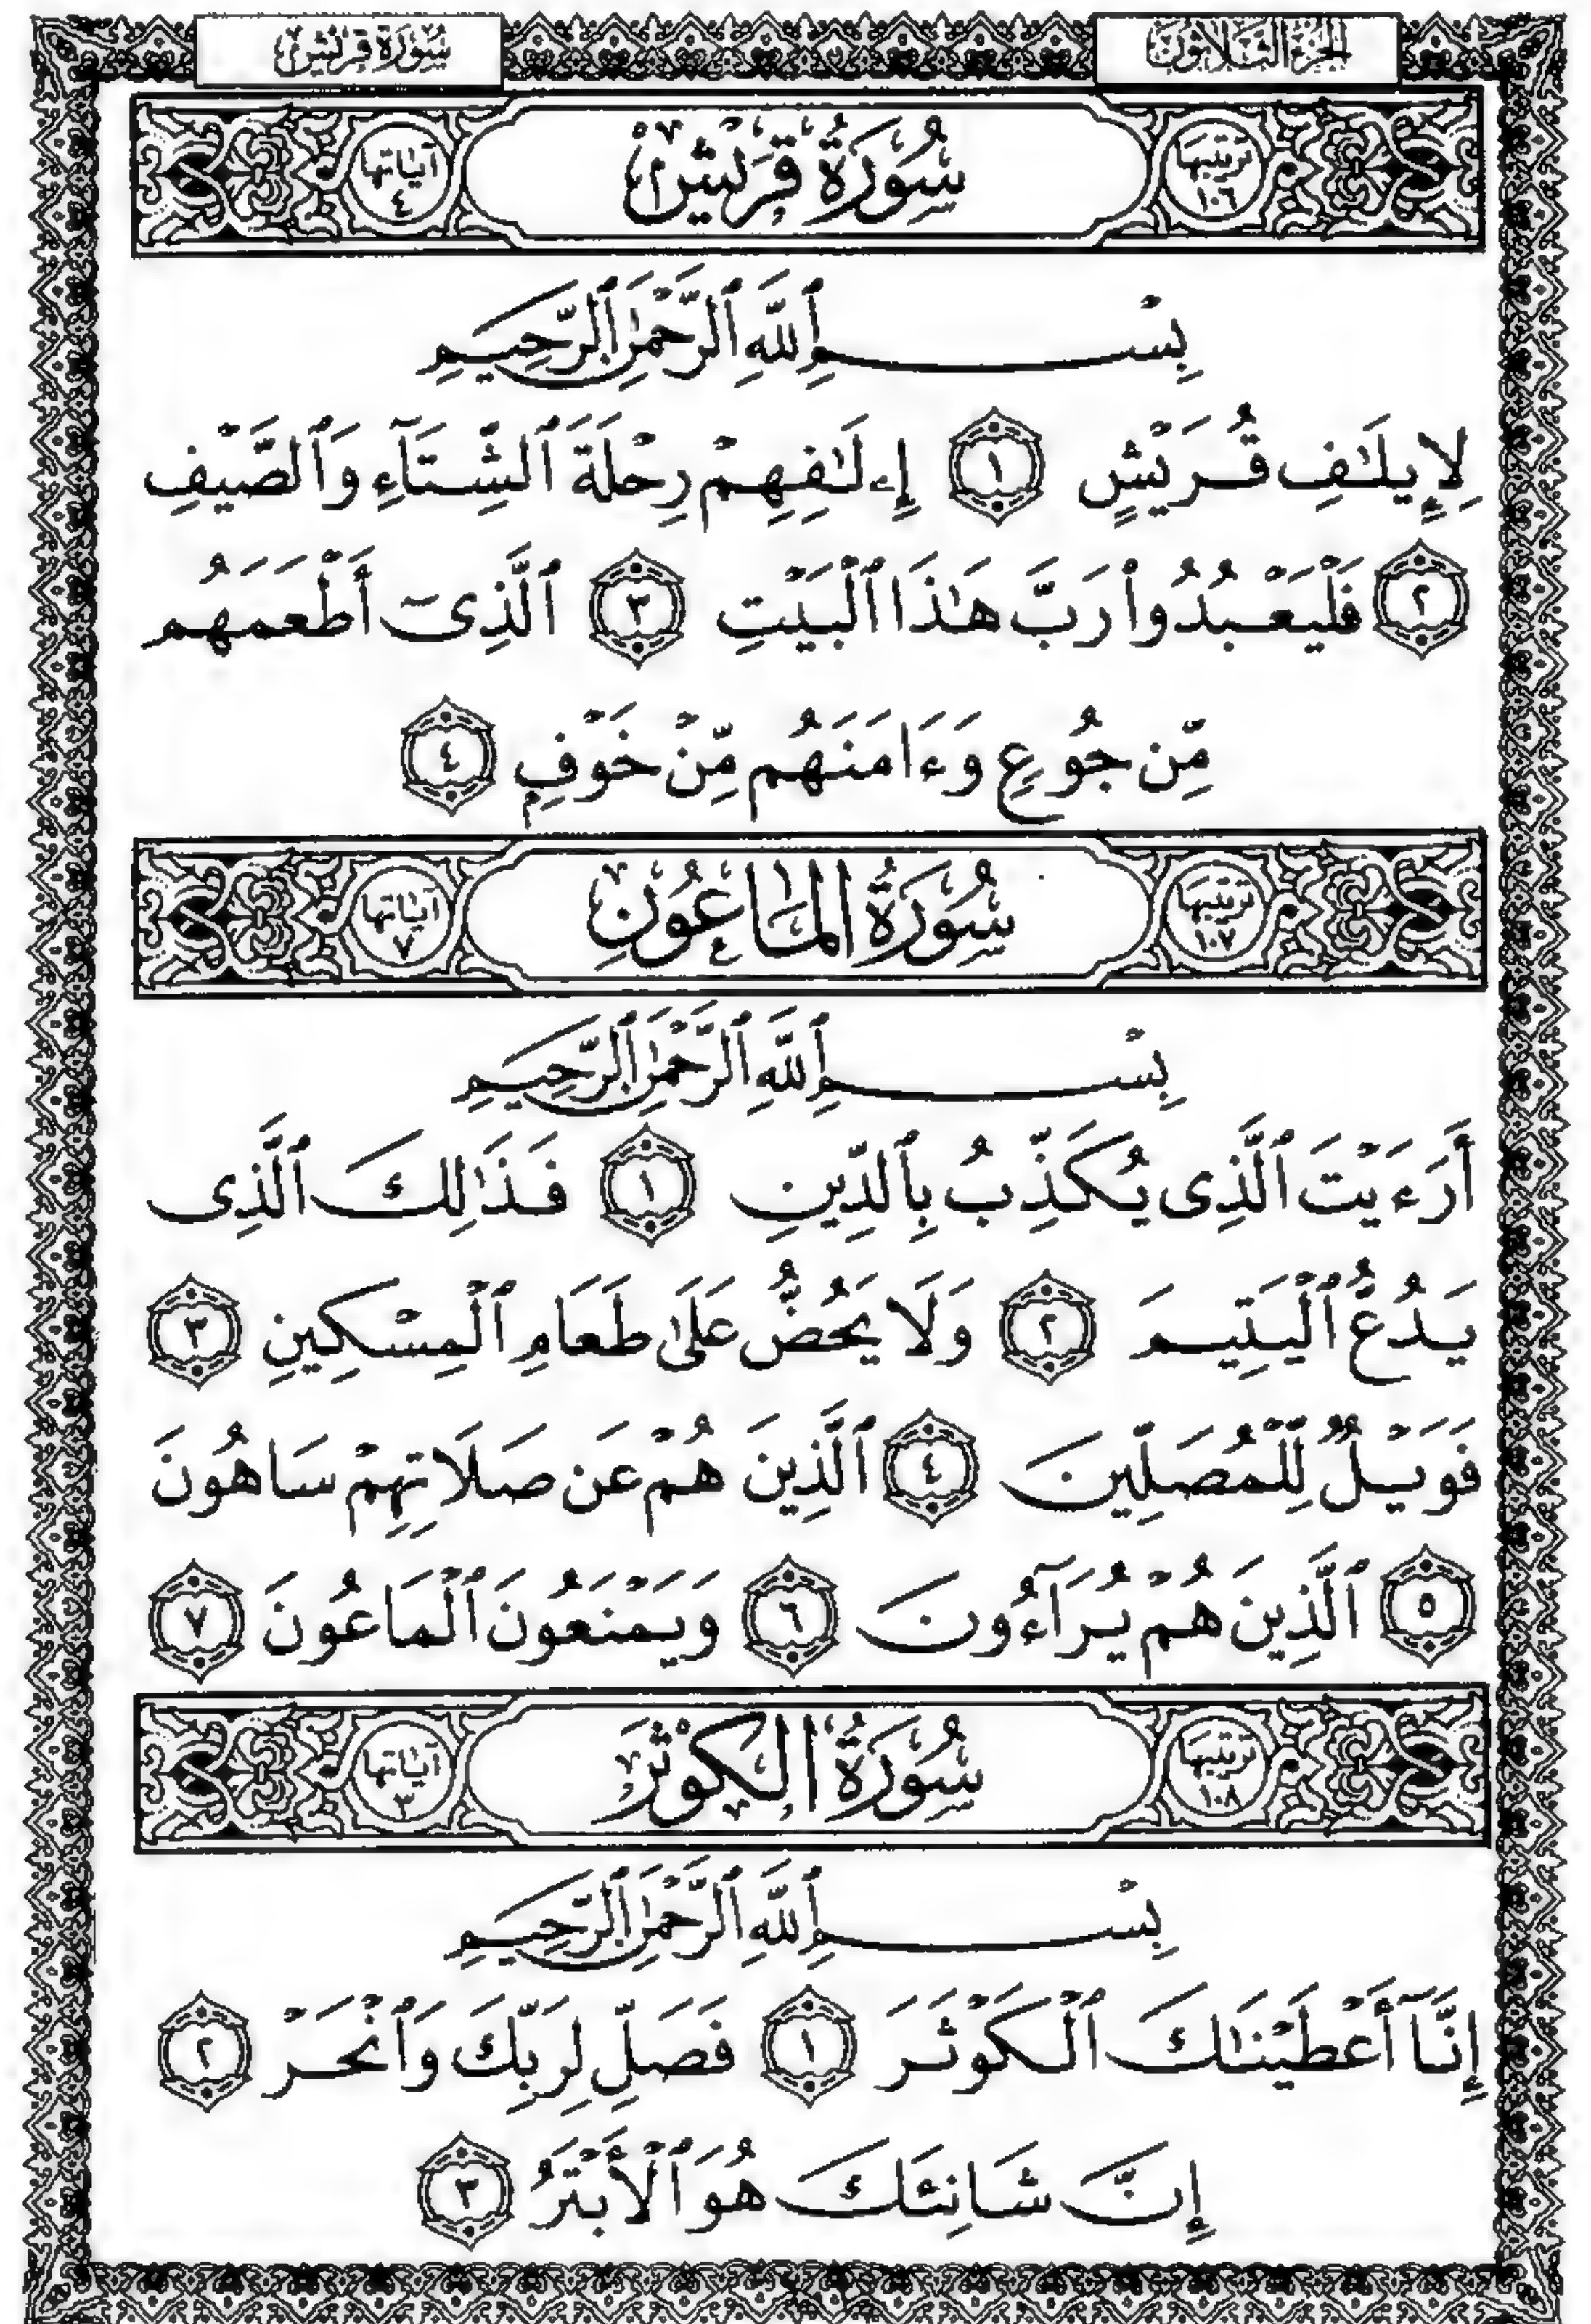 الجزء الثلاثون
سورة قريش
ترتيبها ١٠٦
سُورَةُ قُرَيْشٍ
آياتها ٤
بِسْمِ ٱللَّهِ ٱلرَّحْمَٰنِ ٱلرَّحِيمِ
لِإِيلَٰفِ قُرَيْشٍ ١ إِۦلَٰفِهِمْ رِحْلَةَ ٱلشِّتَآءِ وَٱلصَّيْفِ
٢ فَلْيَعْبُدُوا۟ رَبَّ هَٰذَا ٱلْبَيْتِ ٣ ٱلَّذِىٓ أَطْعَمَهُم
مِّن جُوعٍ وَءَامَنَهُم مِّنْ خَوْفٍۭ ٤
ترتيبها ١٠٧
سُورَةُ المَاعُونِ
آياتها ٧
بِسْمِ ٱللَّهِ ٱلرَّحْمَٰنِ ٱلرَّحِيمِ
أَرَءَيْتَ ٱلَّذِى يُكَذِّبُ بِٱلدِّينِ ١ فَذَٰلِكَ ٱلَّذِى
يَدُعُّ ٱلْيَتِيمَ ٢ وَلَا يَحُضُّ عَلَىٰ طَعَامِ ٱلْمِسْكِينِ ٣
فَوَيْلٌ لِّلْمُصَلِّينَ ٤ ٱلَّذِينَ هُمْ عَن صَلَاتِهِمْ سَاهُونَ
٥ ٱلَّذِينَ هُمْ يُرَآءُونَ ٦ وَيَمْنَعُونَ ٱلْمَاعُونَ ٧
ترتيبها ١٠٨
سُورَةُ الكَوْثَرِ
آياتها ٣
بِسْمِ ٱللَّهِ ٱلرَّحْمَٰنِ ٱلرَّحِيمِ
إِنَّآ أَعْطَيْنَٰكَ ٱلْكَوْثَرَ ١ فَصَلِّ لِرَبِّكَ وَٱنْحَرْ ٢
إِنَّ شَانِئَكَ هُوَ ٱلْأَبْتَرُ ٣